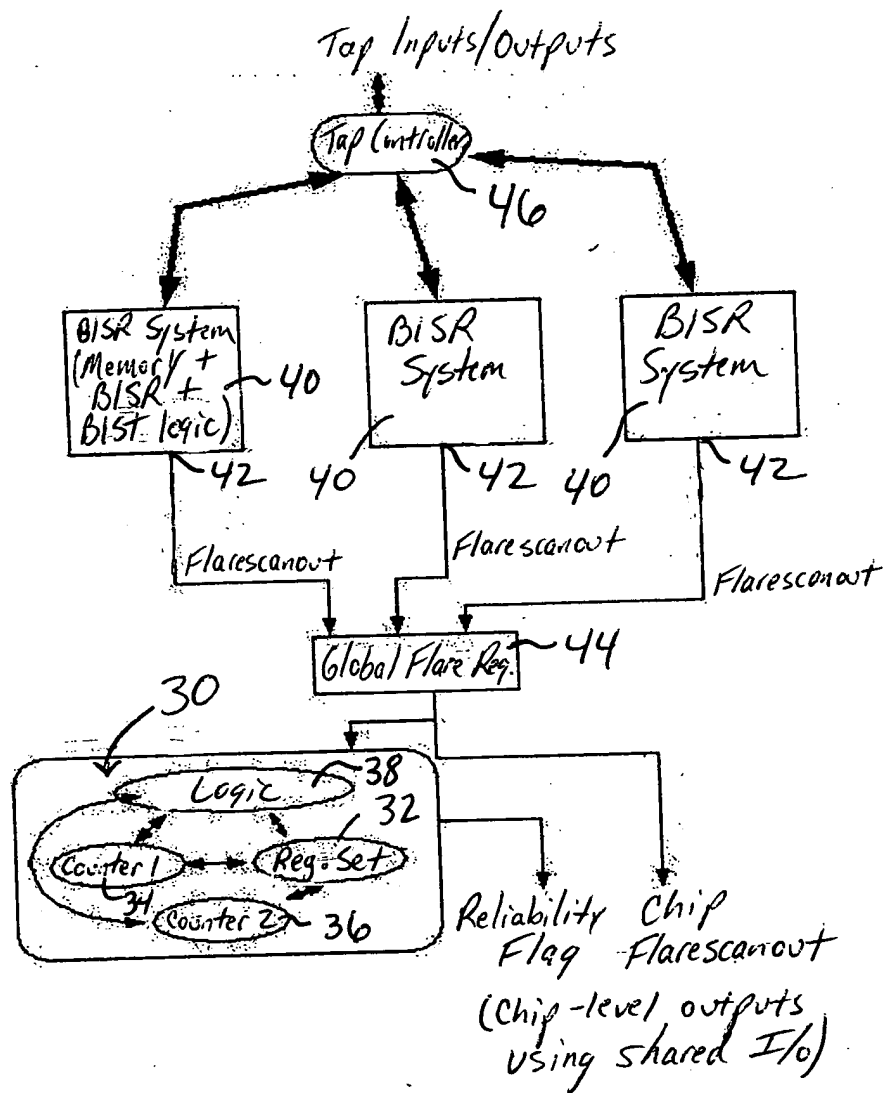 Tap Inputs/Outputs
Tap Controller
46
BISR System
(Memory +
BISR +
BIST logic)
40
BISR
System
40
BISR
System
40
42
42
42
Flarescanout
Flarescanout
Flarescanout
Global Flare Reg.
44
30
Logic
38
32
Counter 1
34
Reg. Set
Counter 2
36
Reliability
Flag
Chip
Flarescanout
(Chip-level outputs
using shared I/O)